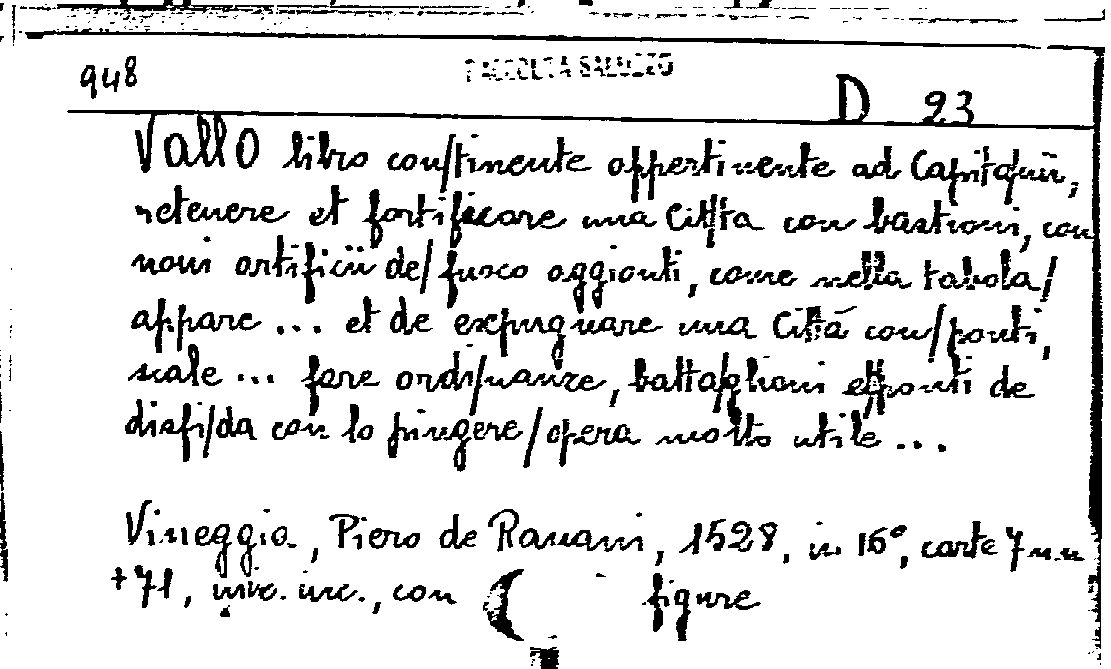 948
RACCOLTA SALUZZO
D 23
Vallo libro con/tinente appertinente ad Capitanii,
retenere et fortificare una Citta con bastioni, con
novi artificii de/fuoco aggionti, come nella tabola/
appare ... et de expugnare una Città con/ponti,
scale ... fare ordi/nanze, battaglioni et ponti de
disfi/da con lo pingere/opera molto utile ...
Vineggia, Piero de Ravani, 1528, in 16°, carte 7 n.n
+71, inc., con figure